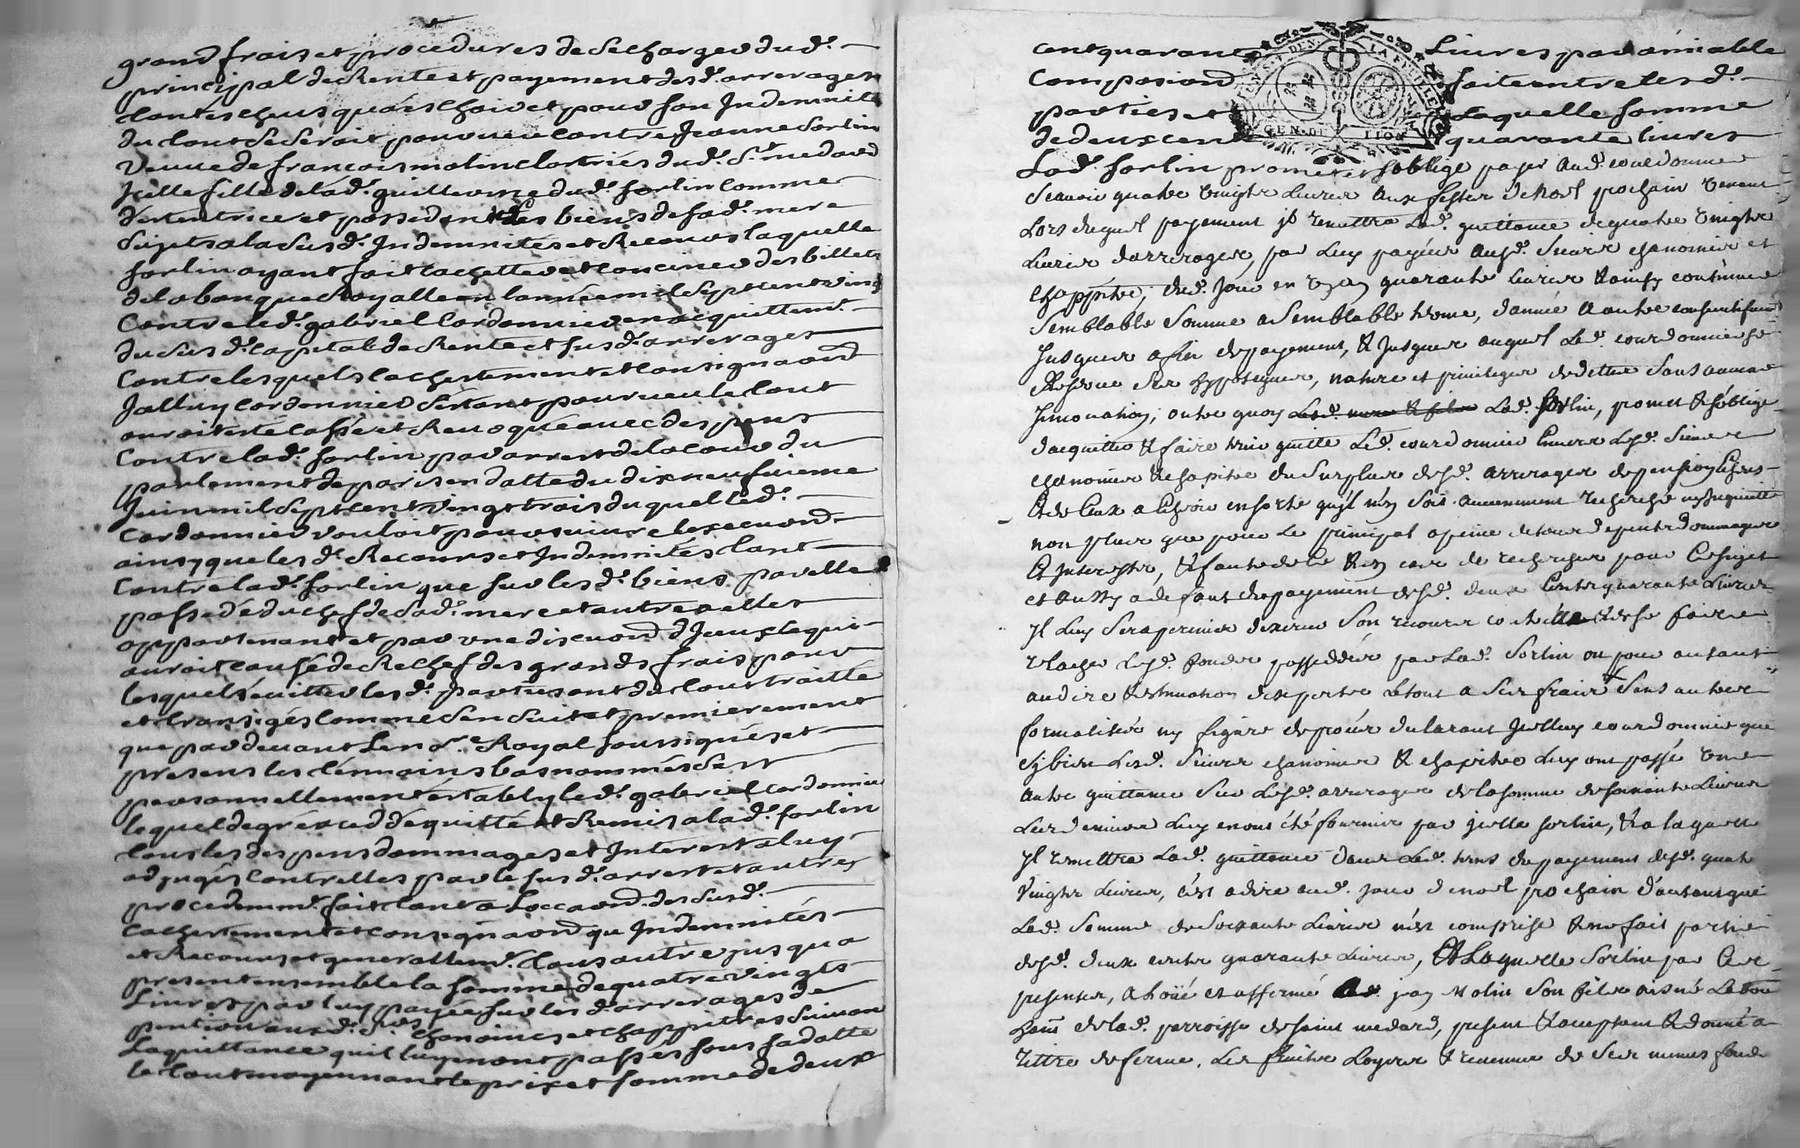 grand frais et procedures de se charger du d.
principal de Rente et payement des d. arrerages
tant escheus qua escheoir et pour son Indemnité
du tout se seroit pourvue contre Jeanne sorlin
veuve de francois molin clastries du d. St. medard
Icelle fille de la d. guillemine du d. sorlin comme
detentrice et possedent les biens de sa d. mere
sujets a la sus d. Indemnités et Recours laquelle
sorlin ayant fait cachetter et consiner des billets
de la banque Royalle en lannée mil sept cent vingt
contre le d. gabriel Cordonnier en acquittem.
du sus d. capital de Rente et sus d. arrerages
contre lesquels cachettement et consignaon
Jalluy Cordonnier sestant pourveu le tout
auroit esté cassé et Revoqué avec des pens
contre la d. sorlin par arrest de la cour du
parlement de paris en datte du dix neufvieme
Juin mil sept cent vingt trois duquel le d.
Cordonnier vouloit poursuivre lexecuon
ainsy que les d. Recours et Indemnités tant
contre la d. sorlin que sur les d. biens par elle
possedé du chef de sa d. mere et autre a elle
appartenant et par une discuon d Jceux ce qui
auroit causé de Rechef des grands frais pour
lesquels eviter les d. parties ont du tout traitté
et transigés comme sen suit et premierement
que par devant Le no.re Royal soussignés et
presens les témoins bas nommés sest
personnellement estably le d. gabriel Cordonnier
lequel de gré a ced. de quitté et Remis a la d. sorlin
tous les des pens dommages et Interest a luy
adjugés contre elles par le sus d. arrest et autres
procedemm. fait tant a loccaon des sus d.
cachettement et consignaon qu Indemnités
et Recours et generallem. tous autre jusqu a
present ensemble la somme de quatre vingts
Livres par luy payée sur les d. arrerages de
pention aux d. srs chanoines et chappitres suivant
la quittance quil luy en ont passés sous sa datte
le tout moyennant le prix et somme de deux
cent quarante Livres par amiable
Composiaon faite entre les d.
parties et Laquelle somme
de deux cent quarante livres
La d. sorlin promet et soblige payer au d. courdonnier
scavoir quatre vingts Livres aux festes de noel prochain venant
Lors duquel payement jl remettra La d. quittance de quatre vingts
Livres darrerages, par Luy payées aus d. sieurs chanoines et
chappitre, du d. jour en un an quarante Livres & ainsy continuer
semblable somme a semblable terme, dannée a autre consecutifvem.
Jusques a fin de payement, & jusques auquel Le d. courdonnier se
reserve ses hyppoteques, nature et privileges de dette sans aucune
Innovation; outre quoy La d. sorlin, promet & soblige
dacquitter & faire tenir quitte Le d. courdonnier Envers Les d. sieurs
chanoines & chapitre du surplus des d. arrerages de pension Echus
& de Ceux a Echoir en sorte quil nen soit aucunement recherché ny Inquietté
non plus que pour Le principal a peine de tous depents dommages
& Interests, & faute de ce & en cas de recherches pour ce sujet
et aussy a defaut de payement des d. deux Cents quarante Livres
Jl Luy sera permis dexercer son recours contre & de se faire
relacher Les d. fonds posseddés par La d. sorlin ou pour autant
au dire & estimation dexperts Le tout a ses frais sans autres
formalités ny figure de procés declarant Jcelluy courdonnier que
sy bien Les d. sieurs chanoines & chapitre Luy ont passé une
autre quittance sur Les d. arrerages de la somme de soixante Livres
Les deniers Luy en ont été fournis par jcelle sorlin, & a laquelle
Jl remettra La d. quittance dans Le d. tems du payement des d. quatre
vingts Livres, cést a dire au d. jour de noel prochain d'autant que
La d. somme de soixante Livres n'est comprise & ne fait partie
des d. deux cents quarante Livres, & Laquelle sorlin par Ces
presentes, a loüé et affermé a jean Molin son fils aisné Labou
reur de la d. parroisse de saint medard, present & acceptant & donné a
tittre de ferme, Les fruits Loyers & revenus de ses memes fonds
GEN. DE